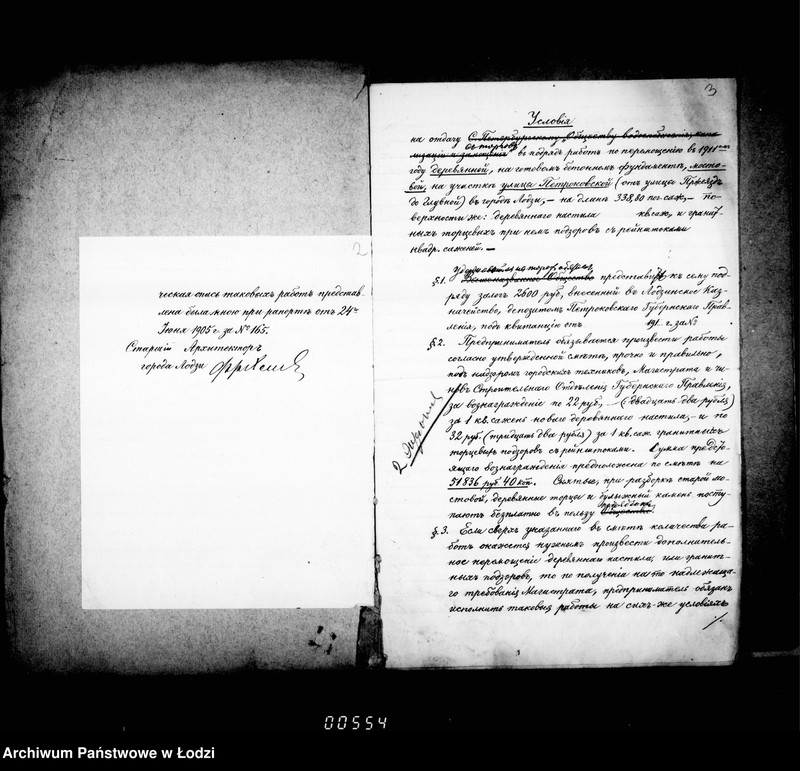 2
ческая опись таковыхъ работъ представ-
лена была мною при рапортѣ отъ 24го
Іюня 1905 г. за № 165.
Старшій Архитекторъ
города Лодзи
3
Условія
на отдачу С.Петербургскому Обществу водоснабженія, кана
лизаціи и замощенія съ торговъ въ подрядъ работъ по перемощенію въ 1911омъ
году деревянной, на готовомъ бетонномъ фундаментѣ, мосто-
вой, на участкѣ улицы Петроковской (отъ улицы Проѣздъ
до Главной) въ городѣ Лодзи, – на длинѣ 338,80 пог. саж, – по-
верхности же: деревяннаго настила кв. саж, и гранит-
ныхъ торцевыхъ при немъ подзоровъ съ рейнштоками
квадр. саженей. –
§1. представилъ къ сему под-
ряду залогъ 2600 руб, внесенный въ Лодзинское Каз-
начейство, депозитомъ Петроковскаго Губернскаго Прав-
ленія, подъ квитанцію отъ 191 г. за №
§2. Предприниматель обязывается произвести работы
согласно утвержденной смѣтѣ, прочно и правильно,
подъ надзоромъ городскихъ техниковъ, Магистрата и чи-
новъ Строительнаго Отдѣленія Губернскаго Правленія,
за вознагражденіе по 22 руб, – (двадцать два рубля)
за 1 кв. сажень новаго деревяннаго настила, – и по
32 руб. (тридцать два рубля) за 1 кв. саж. гранитныхъ
торцевыхъ подзоровъ съ рейнштоками. Сумма предсто-
ящаго вознагражденія предположена по смѣтѣ на
51836 руб 40 коп. Снятые, при разборкѣ старой мо-
стовой, деревянные торцы и булыжный камень посту-
паютъ безплатно въ пользу Общества
§3. Если сверхъ указаннаго въ смѣтѣ количества ра-
ботъ окажется нужнымъ произвести дополнитель-
ное перемощеніе деревяннаго настила, или гранит-
ныхъ подзоровъ, то по полученіи на то надлежаща-
го требованія Магистрата, предприниматель обязанъ
исполнить таковыя работы на сихъ-же условіяхъ
00554
Archiwum Państwowe w Łodzi